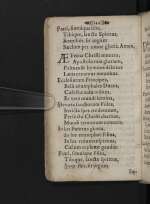 Patri, simulque filio,
Tibique, sancte Spiritus,
Sæculum per omne gloria. Amen.
Æterna Christi munera,
Apostolorum gloriam,
Palmas & hymnos debitos
Lætis canamus mentibus.
Ecclesiarum Principes,
Belli triumphales Duces,
Cælestis aulæ milites,
Et vera mundi lumina.
Devota sanctorum fides,
Invicta spes credentium,
Perfecta Christi charitas
Mundi tyrannum conterit.
In his Paterna gloria,
In his triumphat Filius,
In his voluntas Spiritus,
Cælum repletur gaudio.
Patri, simulque Filio,
Tibique, sancte Spiritus,